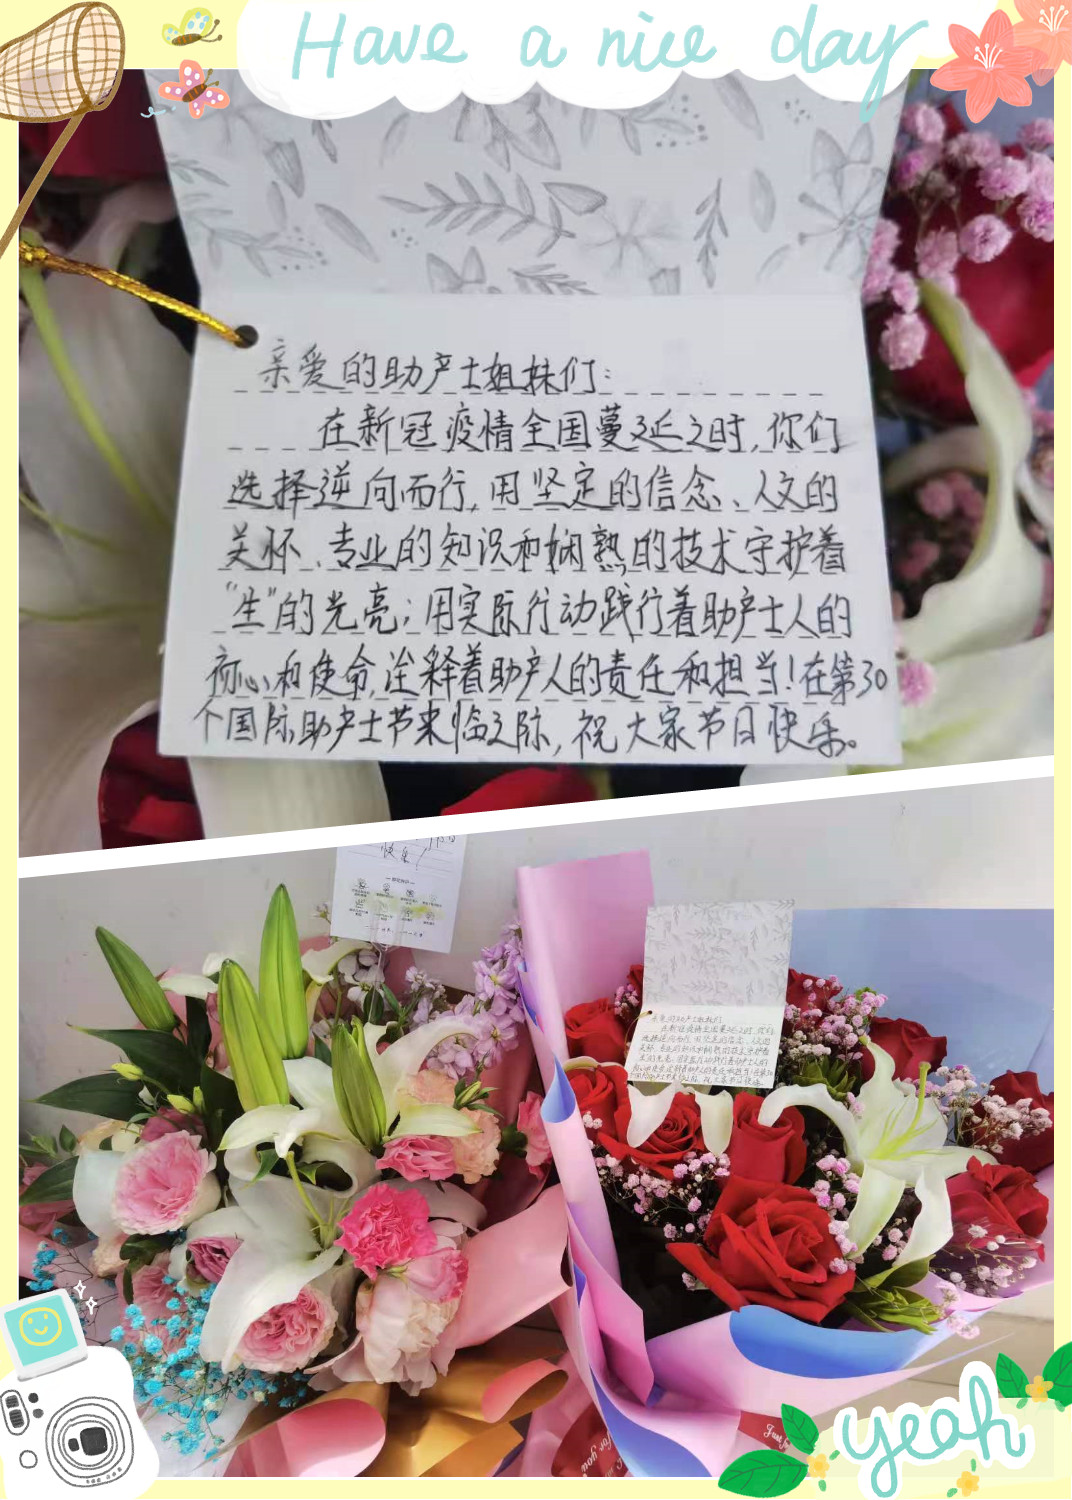 Have a nice day
亲爱的助产士姐妹们:
在新冠疫情全国蔓延之时,你们
选择逆向而行,用坚定的信念、人文的
关怀、专业的知识和娴熟的技术守护着
"生"的光亮;用实际行动践行着助产士人的
初心和使命,诠释着助产人的责任和担当!在第30
个国际助产士节来临之际,祝大家节日快乐。
快乐
for you
Just
yeah